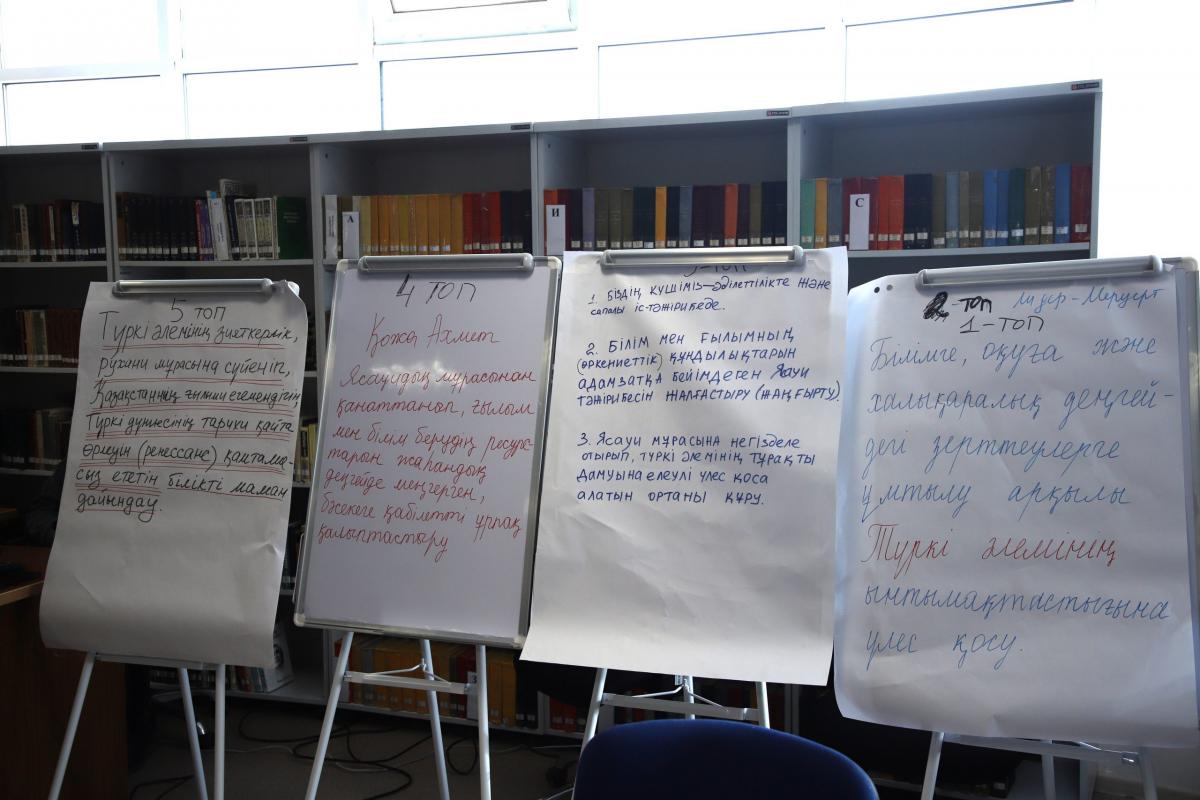 5 топ
Түркі әлемінің зияткерлік,
рухани мұрасына сүйеніп,
Қазақстанның ғылыми егемендігін,
Түркі дүниесінің тарихи қайта
өрлеуін (ренессанс) қамтама-
сыз ететін білікті маман
дайындау.
4 топ
Қожа Ахмет
Ясауидың мұрасынан
қанаттанып, ғылым
мен білім берудің ресурс-
тарын жарандық
деңгейде меңгерген,
бәсекеге қабілетті ұрпақ
қалыптастыру
3-топ
1. Біздің күшіміз–әділеттілікте және
сапалы іс-тәжірибеде.
2. Білім мен ғылымның
(өркениеттік) құндылықтарын
адамзатқа бейімдеген Ясауи
тәжірибесін жалғастыру (жаңғырту)
3. Ясауи мұрасына негізделе
отырып, түркі әлемінің тұрақты
дамуына елеулі үлес қоса
алатын ортаны құру.
-топ Лидер-Меруерт
1-топ
Білімге, оқуға және
халықаралық деңгей-
дегі зерттеулерге
ұмтылу арқылы
Түркі әлемінің
ынтымақтастығына
үлес қосу.
А
И
С